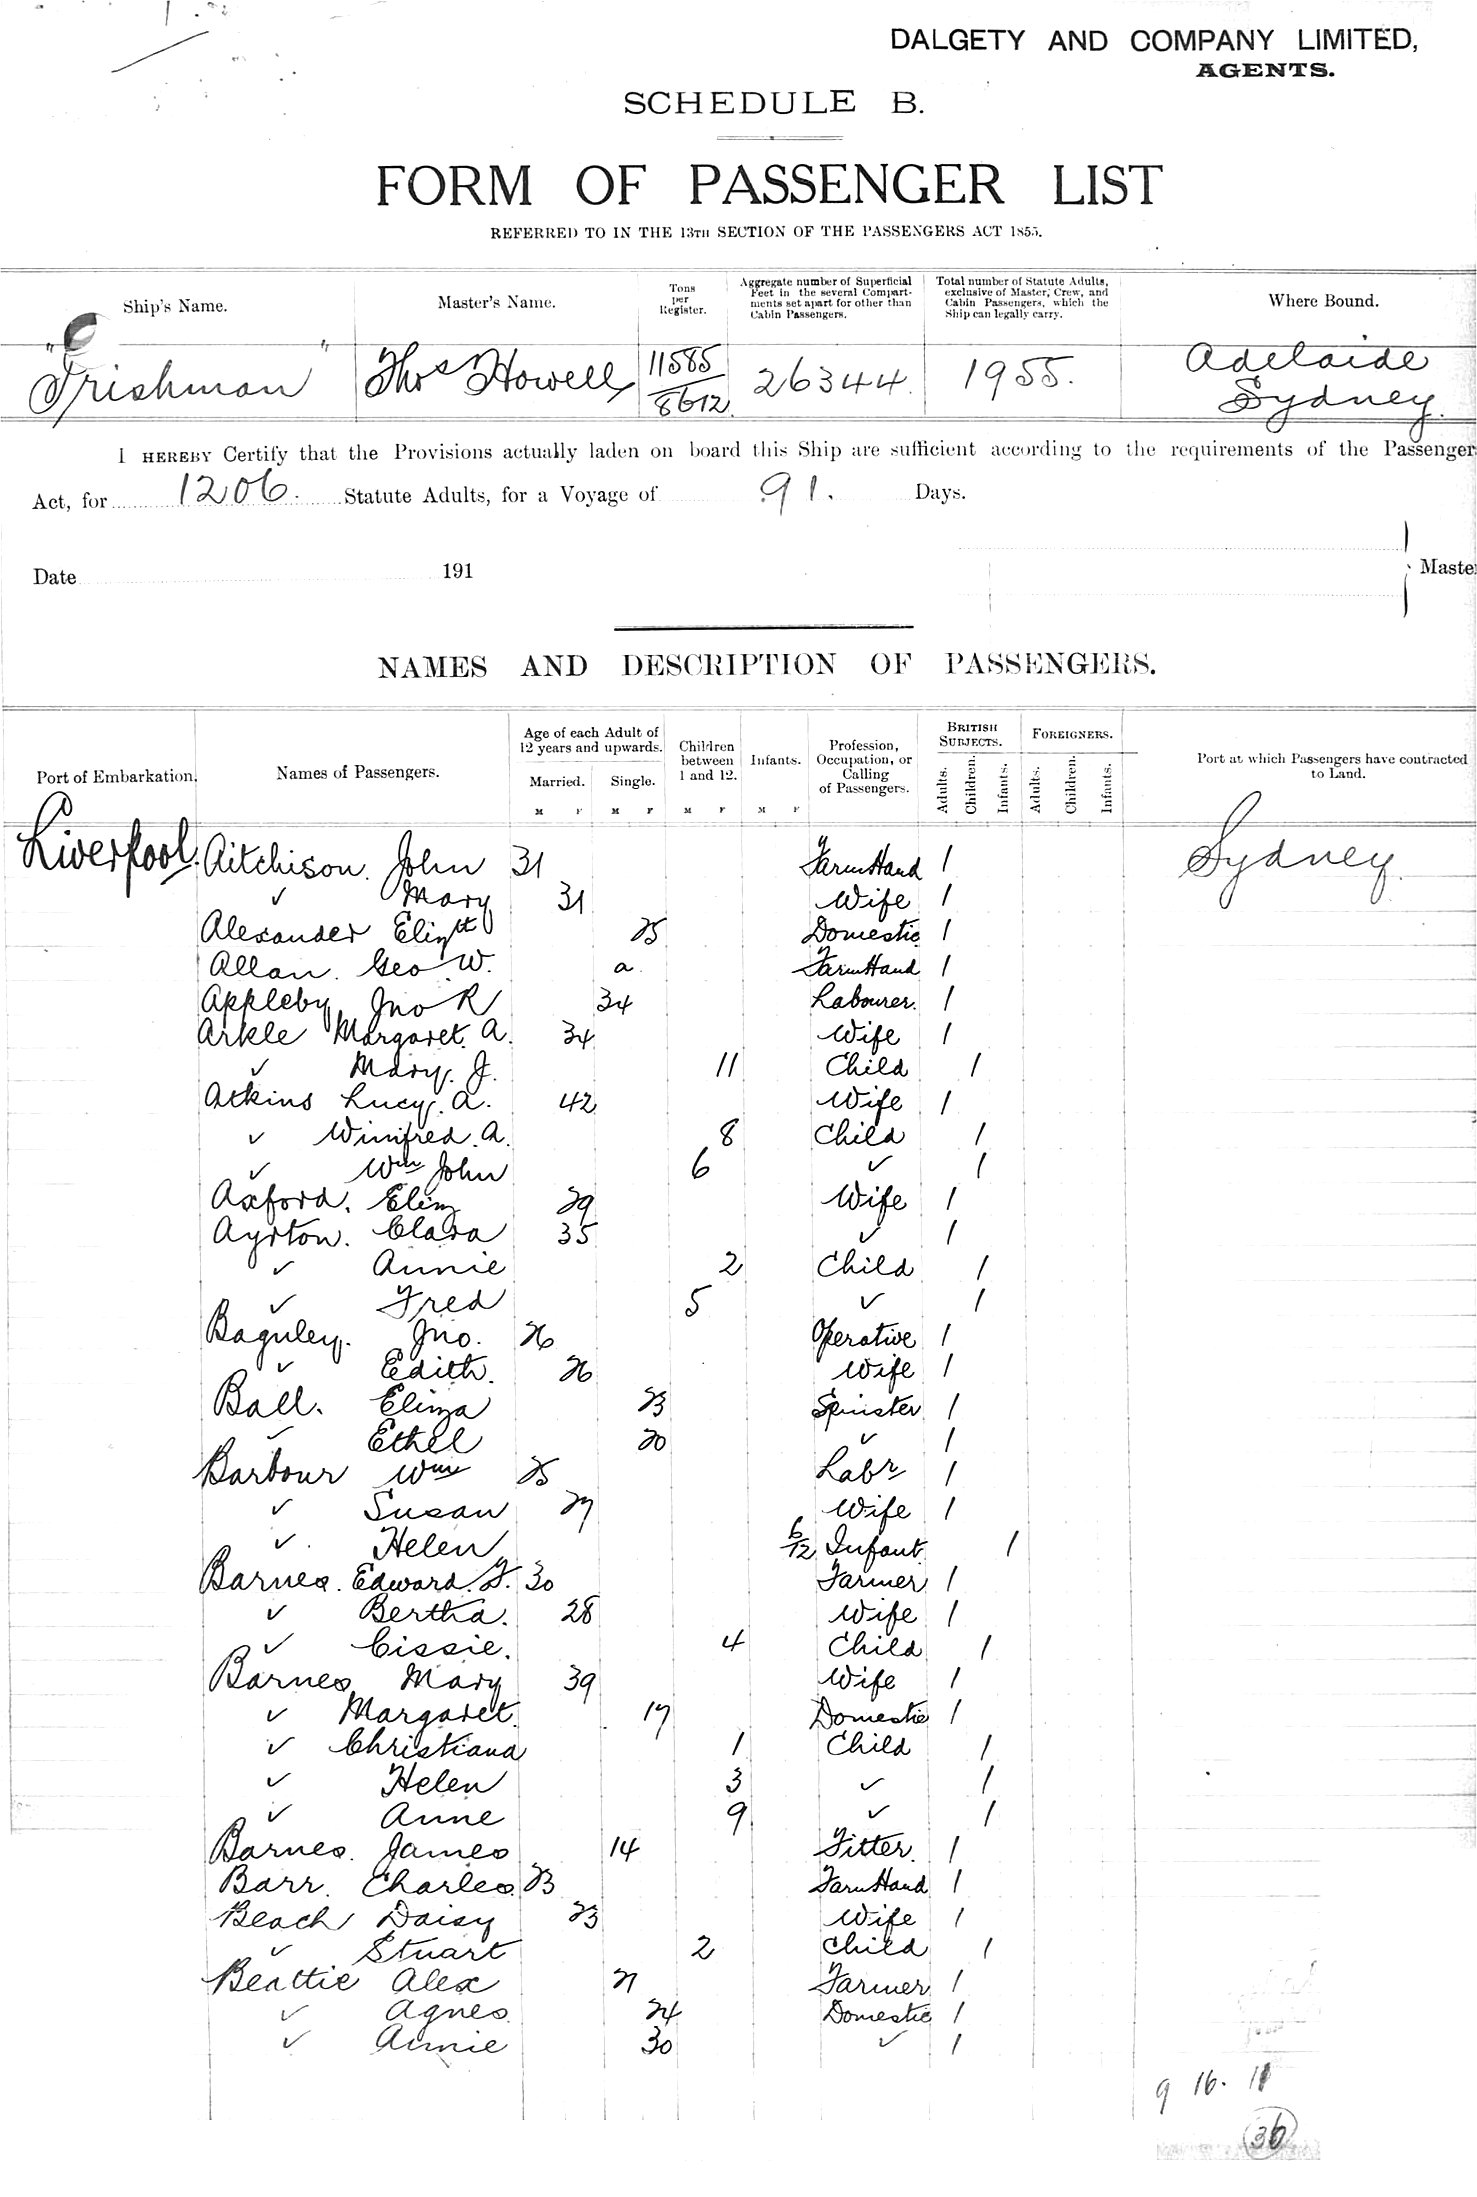 DALGETY AND COMPANY LIMITED,
AGENTS.
SCHEDULE B.
FORM OF PASSENGER LIST
REFERRED TO IN THE 13TH SECTION OF THE PASSENGERS ACT 1855.
Ship's Name. Master's Name. Tons per Register. Aggregate number of Superficial Feet in the several Compartments set apart for other than Cabin Passengers. Total number of Statute Adults, exclusive of Master, Crew, and Cabin Passengers, which the Ship can legally carry. Where Bound.
"Irishman" Thos Howell 11585/8612 26344 1955. Adelaide Sydney.
I HEREBY Certify that the Provisions actually laden on board this Ship are sufficient according to the requirements of the Passenger
Act, for 1206. Statute Adults, for a Voyage of 91. Days.
Date 191 Master
NAMES AND DESCRIPTION OF PASSENGERS.
Port of Embarkation. Names of Passengers. Age of each Adult of 12 years and upwards. Married. M F Single. M F Children between 1 and 12. M F Infants. M F Profession, Occupation, or Calling of Passengers. BRITISH SUBJECTS. Adults. Children. Infants. FOREIGNERS. Adults. Children. Infants. Port at which Passengers have contracted to Land.
Liverpool. Aitchison. John 31 Farm Hand 1 Sydney.
✓ Mary 31 Wife 1
Alexander Elizth 25 Domestic 1
Allan. Geo W. a Farm Hand 1
Appleby Jno R 34 Labourer. 1
Arkle Margaret. A. 34 Wife 1
✓ Mary. J. 11 Child 1
Atkins Lucy. A. 42 Wife 1
✓ Winifred. A. 8 Child 1
✓ Wm John 6 ✓ 1
Axford. Eliz 29 Wife 1
Ayrton. Clara 35 ✓ 1
✓ Annie 2 Child 1
✓ Fred 5 ✓ 1
Baguley. Jno. 26 Operative 1
✓ Edith. 26 Wife 1
Ball. Eliza 23 Spinster 1
✓ Ethel 20 ✓ 1
Barbour Wm 25 Labr 1
✓ Susan 27 Wife 1
✓ Helen 6/12 Infant 1
Barnes. Edward. F. 30 Farmer 1
✓ Bertha. 28 Wife 1
✓ Cissie. 4 Child 1
Barnes Mary 39 Wife 1
✓ Margaret. 17 Domestic 1
✓ Christiana 1 Child 1
✓ Helen 3 ✓ 1
✓ Anne 9 ✓ 1
Barnes. James 14 Fitter. 1
Barr. Charles. 23 Farm Hand 1
Beach Daisy 23 Wife 1
✓ Stuart 2 Child 1
Beattie Alex 21 Farmer 1
✓ Agnes 24 Domestic 1
✓ Annie 30 ✓ 1
9 16. 11
36